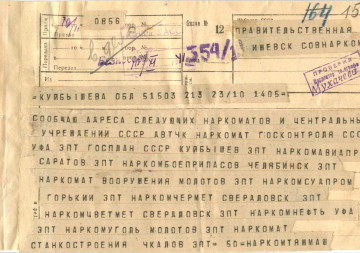 0856
164 15
12
ПРАВИТЕЛЬСТВЕННАЯ
ИЖЕВСК СОВНАРКОМ
354/1
ПРОВЕРЕНО
=КУЙБЫШЕВА ОБЛ 51503 213 23/10 1405=
СООБЩАЮ АДРЕСА СЛЕДУЮЩИХ НАРКОМАТОВ И ЦЕНТРАЛЬНЫ
УЧРЕЖДЕНИИ СССР АВТЧК НАРКОМАТ ГОСКОНТРОЛЯ ССС
УФА ЗПТ ГОСПЛАН СССР КУЙБЫШЕВ ЗПТ НАРКОМАВИАПР
САРАТОВ ЗПТ НАРКОМБОЕПРИПАСОВ ЧЕЛЯБИНСК ЗПТ
НАРКОМАТ ВООРУЖЕНИЯ МОЛОТОВ ЗПТ НАРКОМСУАПРОМ
ГОРЬКИЙ ЗПТ НАРКОМЧЕРМЕТ СВЕРДЛОВСК ЗПТ
НАРКОМЧВЕТМЕТ СВЕРДЛОВСК ЗПТ НАРКОМНЕФТЬ УФА
ЗПТ НАРКОМУГОЛЬ МОЛОТОВ ЗПТ НАРКОМАТ
СТАНКОСТРОЕНИЯ ЧКАЛОВ ЗПТ= 50=НАРКОМТЯЖМАШ